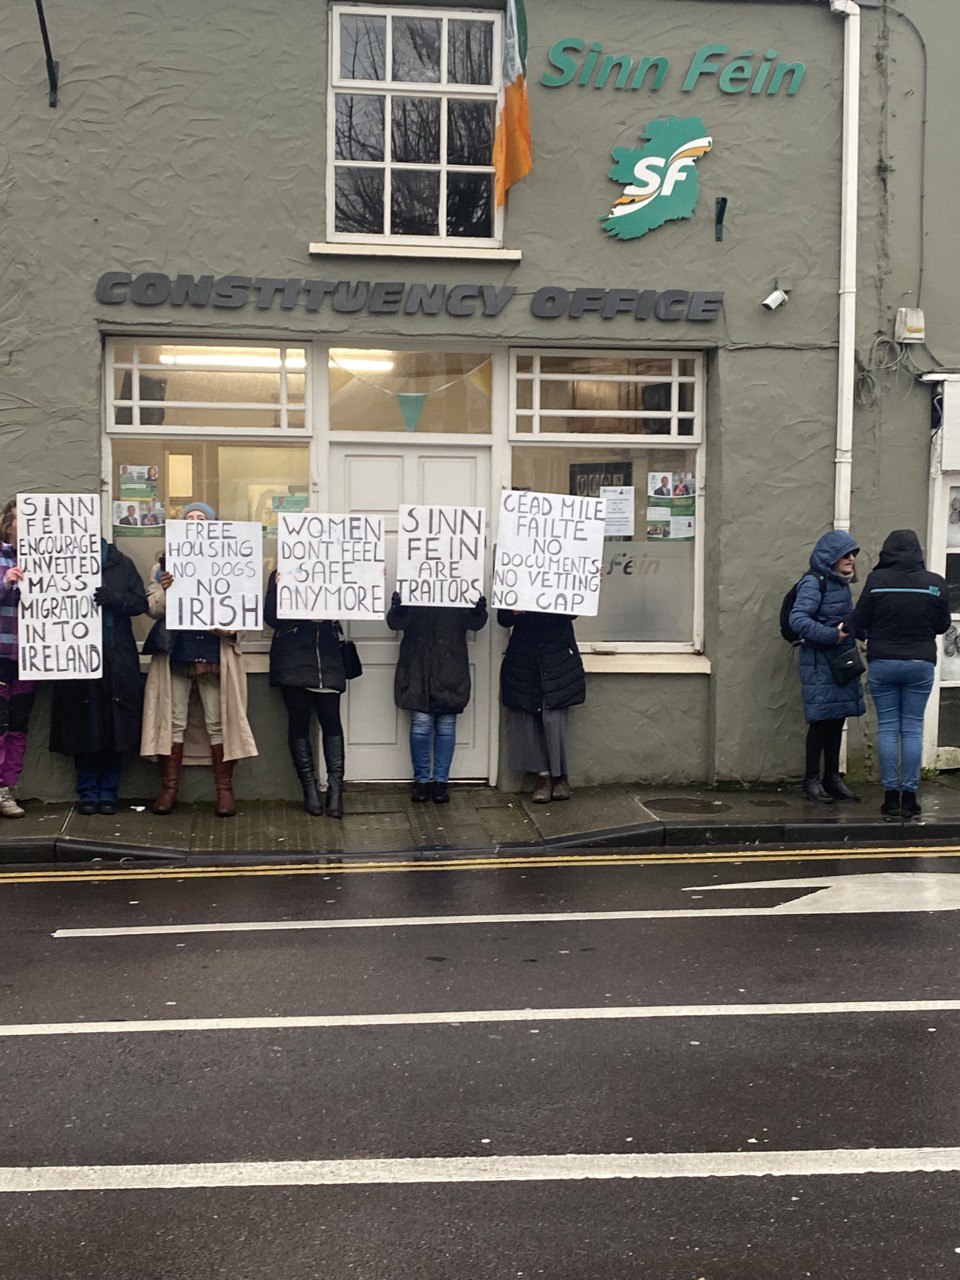 Sinn Féin
SF
CONSTITUENCY OFFICE
SINN
FÉIN
ENCOURAGE
UNVETTED
MASS
MIGRATION
IN TO
IRELAND
FREE
HOUSING
NO DOGS
NO
IRISH
WOMEN
DONT FEEL
SAFE
ANYMORE
SINN
FÉIN
ARE
TRAITORS
CÉAD MILE
FAILTE
NO
DOCUMENTS
NO VETTING
NO CAP
Féin